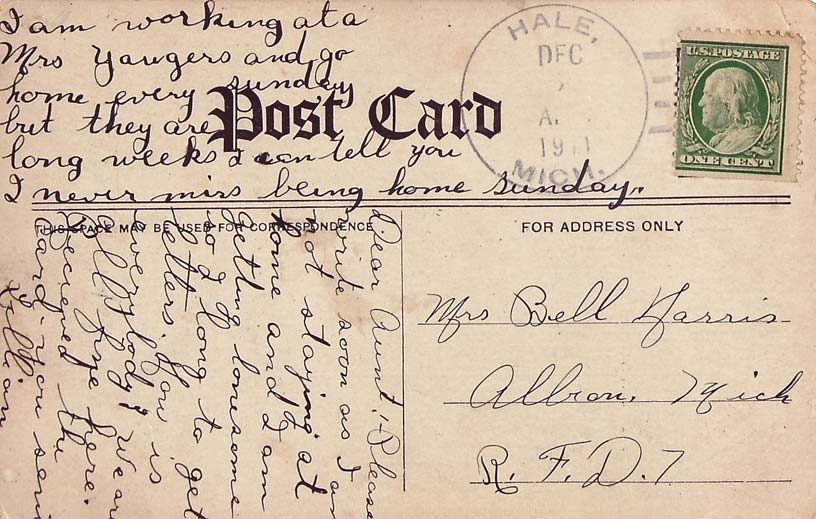 I am working at a
Mrs Yaugers and go
home every sunday
but they are
long weeks I can tell you
I never miss being home sunday.
Post Card
HALE,
DEC
A.
1911
MICH.
U.S. POSTAGE
ONE CENT
THIS SPACE MAY BE USED FOR CORRESPONDENCE
FOR ADDRESS ONLY
Dear Aunt:- Please
write soon as I am
not staying at
home and I am
getting lonesome
and long to get
letters. How is
everybody? We are
all fine here.
Recieved the
card you sent
Lillian
Mrs Bell Harris
Albion, Mich
R. F. D. 7